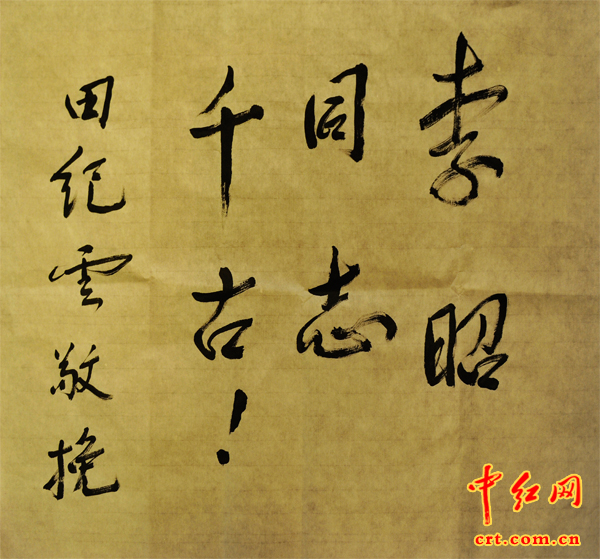 李昭
同志
千古！
田纪雲敬挽
中红网
crt.com.cn